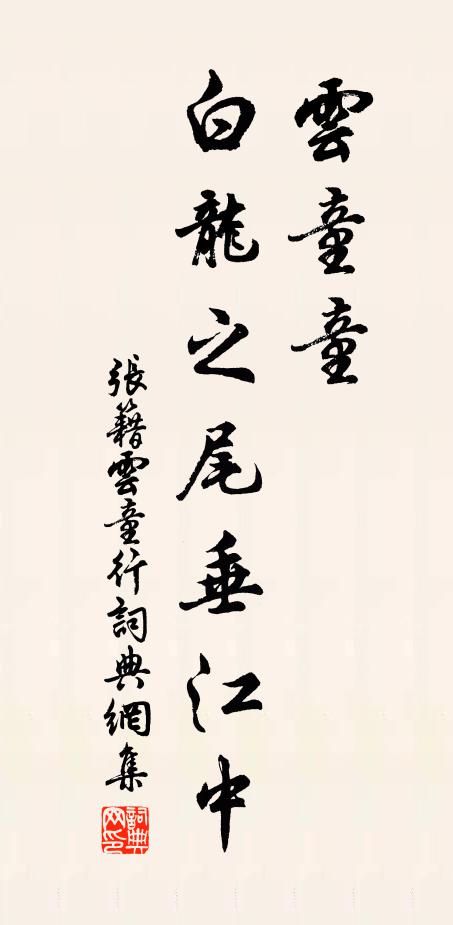 雲童童
白龍之尾垂江中
張籍雲童行詞典網集
詞典
网印